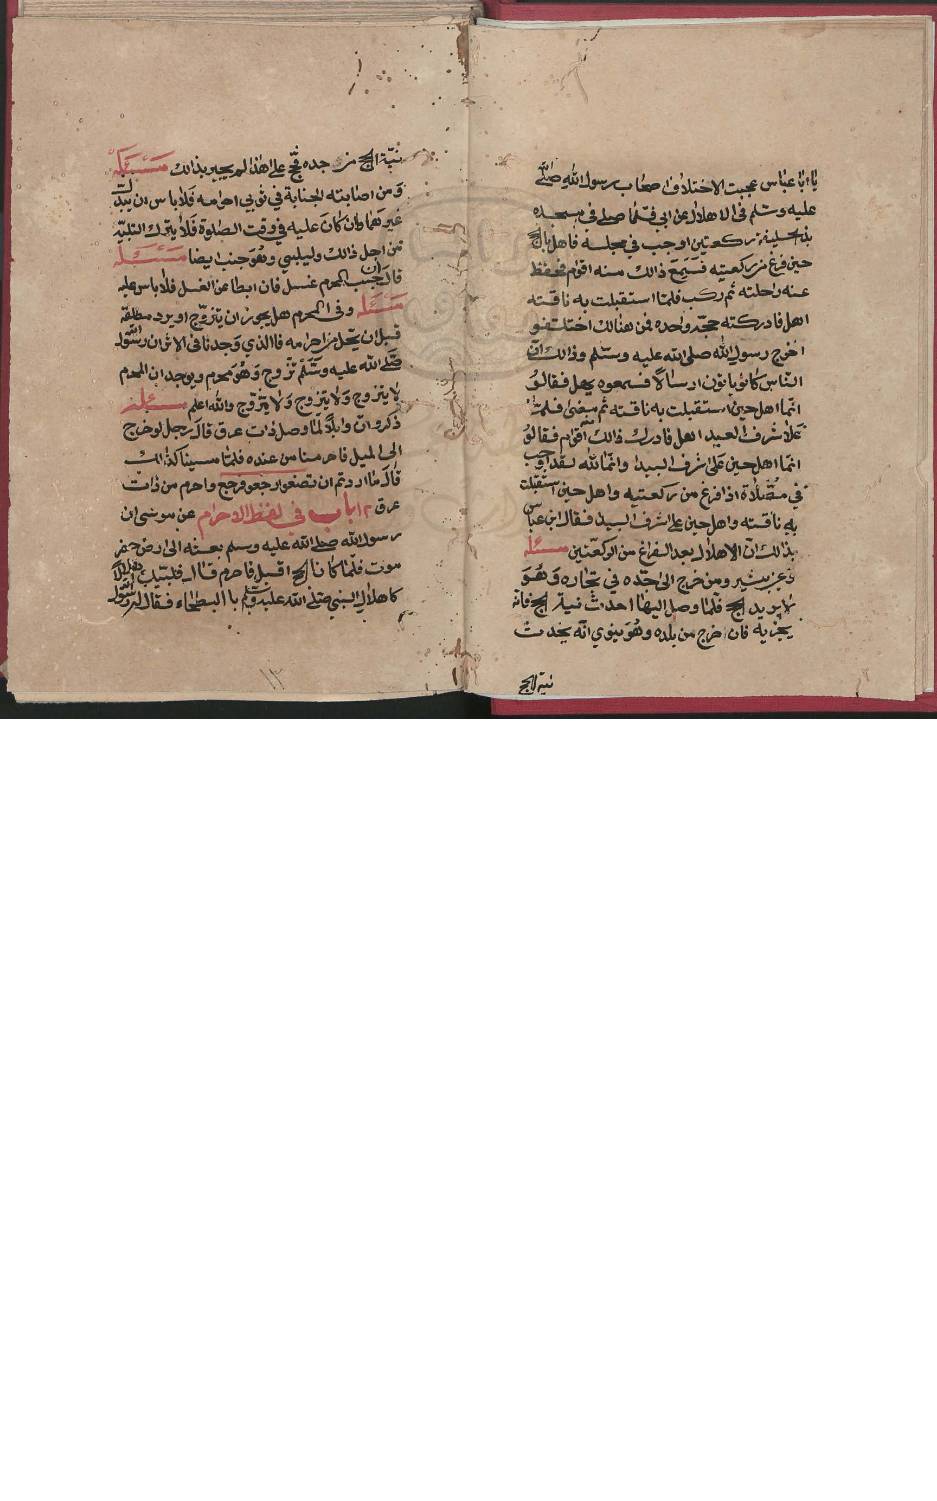 يا أبا عباس عجبت لاختلاف أصحاب رسول الله صلى
عليه وسلم في الاهلال عن ابي فلما صلى في مسجده
بذي الحليفة ركعتين اوجب في مجلسه فاهل بالحج
حين فرغ من ركعتيه فسمع ذالك منه اقوام فحفظ
عنه راحلته ثم ركب فلما استقبلت به ناقته
اهل فادركته حجة واحده فمن هنالك اختلفو
اخرج رسول الله صلى الله عليه وسلم وذالك ان
الناس كانو يأتون ارسالا فسمعوه يهل فقالو
انما اهل حين استقبلت به ناقته ثم مضى فلما
علا شرف البيد اهل فادرك ذالك أقوام فقالو
انما اهل حين علا شرف البيدا وانما الله لقد اوجب
في مصلاه اذا فرغ من ركعتيه واهل حين استقبلت
به ناقته واهل حين علا شرف البيد فقال ابن عباس
بذالك ان الاهلال بعد الفراغ من الركعتين مسئلة
وعن بشير ومن خرج الى جده في تجاره وهو
لا يريد الحج فلما وصل اليها احدث نية الحج فانه
يجزيه فان خرج من بلده وهو ينوي انه يحدث
نية الحج
نية الحج من جده فحج على هذا لم يجيز بذالك مسئلة
ومن اصابته الجنابة في ثوبي احرامه فلا باس ان يبدل
غيرهما وان كان عليه في وقت الصلوة فلا يترك التلبية
من اجل ذالك وليلبي وهو جنب ايضا مسئلة
قال ان جنب المحرم غسل فان ابطا عن الغسل فلا باس عليه
مسئلة وفي المحرم هل يجوز ان يتزوج او يرد مطلقه
قبل ان يحل من احرامه فالذي وجدنا في الاثر ان رسول الله
صلى الله عليه وسلم تزوج وهو محرم ويوجد ان المحرم
لا يتزوج ولا يتزوج ولا يتزوج والله اعلم مسئلة
ذكر وان وايلا لما وصل ذات عرق قال رجل لو خرج
الى الميل فاحرمنا من عنده فلما مسينا كذالك
قال ما اردتم ان تصنعو ارجعو فرجع واحرم من ذات
عرق باب في لفظ الاحرام عن موسى ان
رسول الله صلى الله عليه وسلم بعثه الى ارض حضر
موت فلما كان الحج اقبل فاحرم قال فلبيت اهلالا
كاهلال النبي صلى الله عليه وسلم بالبطحاء فقال له رسول الله